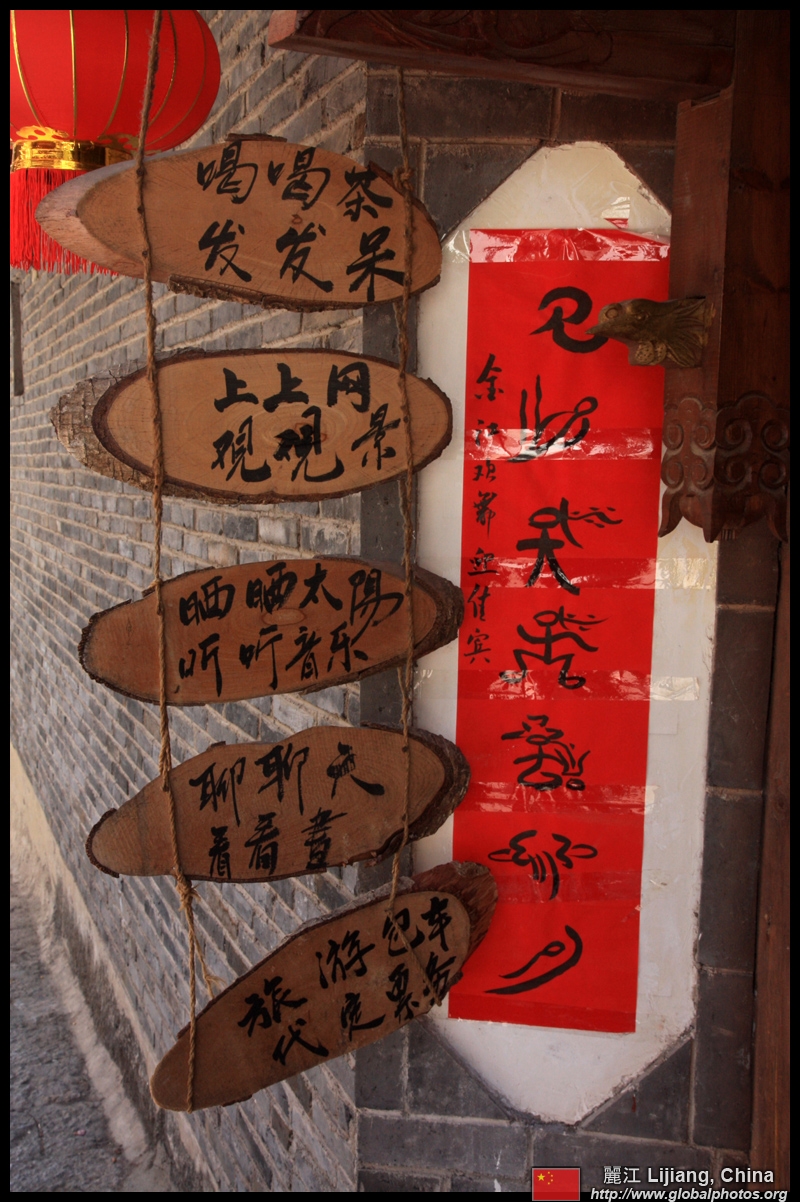 喝喝茶
发发呆
上上网
观观景
晒晒太阳
听听音乐
聊聊天
看看書
旅游包车
代定票务
迎佳宾
麗江 Lijiang, China
http://www.globalphotos.org